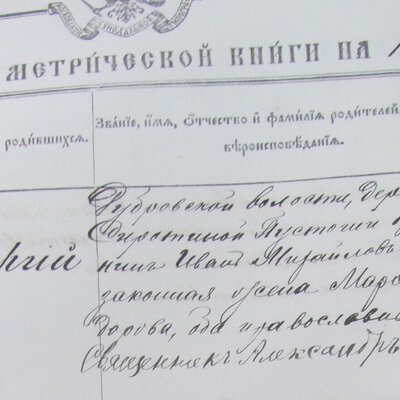 МЕТРИ́ЧЕСКОЙ КНИ́ГИ НА 1
родившихся.
Званіе, имя, отчество и фамилія родителей
вѣроисповѣданія.
Дубровской волости, дер
Сиротиной Пустоши
гій нинъ Иванъ Михайловъ
законная жена Мар
дорова, оба православн
Священникъ Александръ